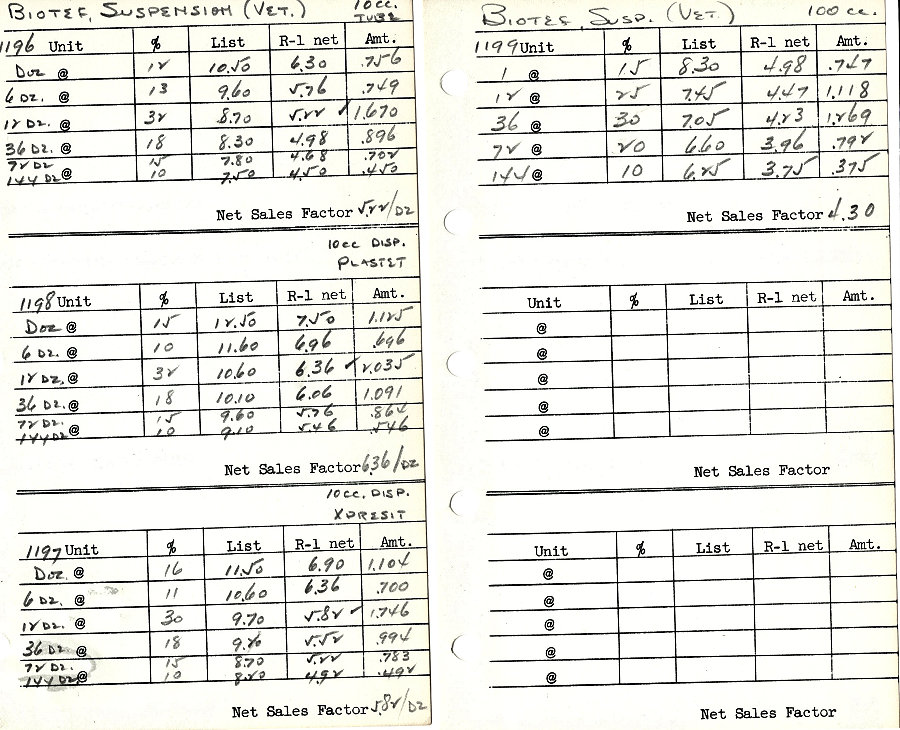 BIOTEF, SUSPENSION (VET.) 10cc. TUBE
1196 Unit % List R-1 net Amt.
Doz @ 12 10.50 6.30 .756
6 Dz. @ 13 9.60 5.76 .749
12 Dz. @ 32 8.70 5.22 ✓ 1.670
36 Dz. @ 18 8.30 4.98 .896
72 Dz. 15 7.80 4.68 .702
144 Dz @ 10 7.50 4.50 .450
Net Sales Factor 5.22/Dz
10cc DISP.
PLASTET
1198 Unit % List R-1 net Amt.
Doz @ 15 12.50 7.50 1.125
6 Dz. @ 10 11.60 6.96 .696
12 Dz. @ 32 10.60 6.36 ✓ 2.035
36 Dz. @ 18 10.10 6.06 1.091
72 Dz. 15 9.60 5.76 .864
144 Dz @ 10 9.10 5.46 .546
Net Sales Factor 6.36/Dz
10cc. DISP.
XPRESIT
1197 Unit % List R-1 net Amt.
Doz @ 16 11.50 6.90 1.104
6 Dz. @ 11 10.60 6.36 .700
12 Dz. @ 30 9.70 5.82 ✓ 1.746
36 Dz @ 18 9.20 5.52 .994
72 Dz. 15 8.70 5.22 .783
144 Dz @ 10 8.20 4.92 .492
Net Sales Factor 5.82/Dz
BIOTEF, SUSP. (VET.) 100 cc.
1199 Unit % List R-1 net Amt.
1 @ 15 8.30 4.98 .747
12 @ 25 7.45 4.47 1.118
36 @ 30 7.05 4.23 1.269
72 @ 20 6.60 3.96 .792
144 @ 10 6.25 3.75 .375
Net Sales Factor 4.30
Unit % List R-1 net Amt.
@
@
@
@
@
Net Sales Factor
Unit % List R-1 net Amt.
@
@
@
@
@
Net Sales Factor